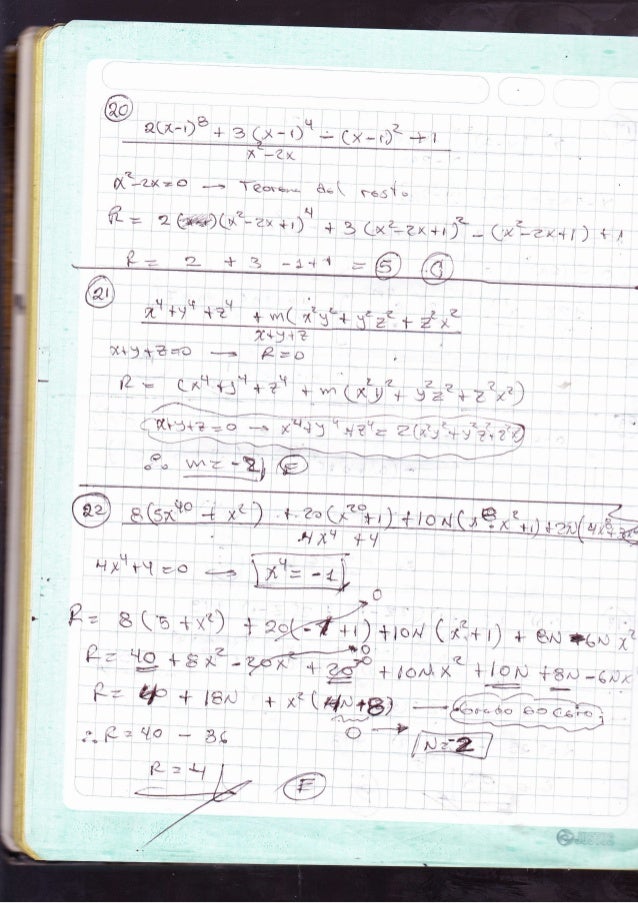 20
2(x-1)⁸ + 3(x-1)⁴ - (x-1)² + 1
x²-2x
x²-2x=0 → Teorema del resto
R = 2 (x²-2x+1)⁴ + 3(x²-2x+1)² - (x²-2x+1) + 1
R = 2 + 3 - 1 + 1 = 5
21
x⁴+y⁴+z⁴ + m(x²y²+y²z²+z²x²
x+y+z
x+y+z=0 → R=0
R = (x⁴+y⁴+z⁴ + m(x²y²+y²z²+z²x²)
(x+y+z=0 → x⁴+y⁴+z⁴= 2(x²y²+y²z²+z²x²)
∴ m=-2, E
22
8(5x⁴⁰ + x²) + 20(x²⁰+1) + 10N(x⁸+x²+1)+2N(4x⁸
4x⁴ +4
4x⁴+4=0 → x⁴=-1
0
R= 8(5+x²) + 20(-1+1) + 10N (x²+1) + 8N -6N x²
R= 40 + 8x² -20x² + 20 + 10Nx² + 10N + 8N -6Nx
R= 40 + 18N + x²(4N+8) → grado
∴ R=40 - 36 0 → N=-2
R=4 E